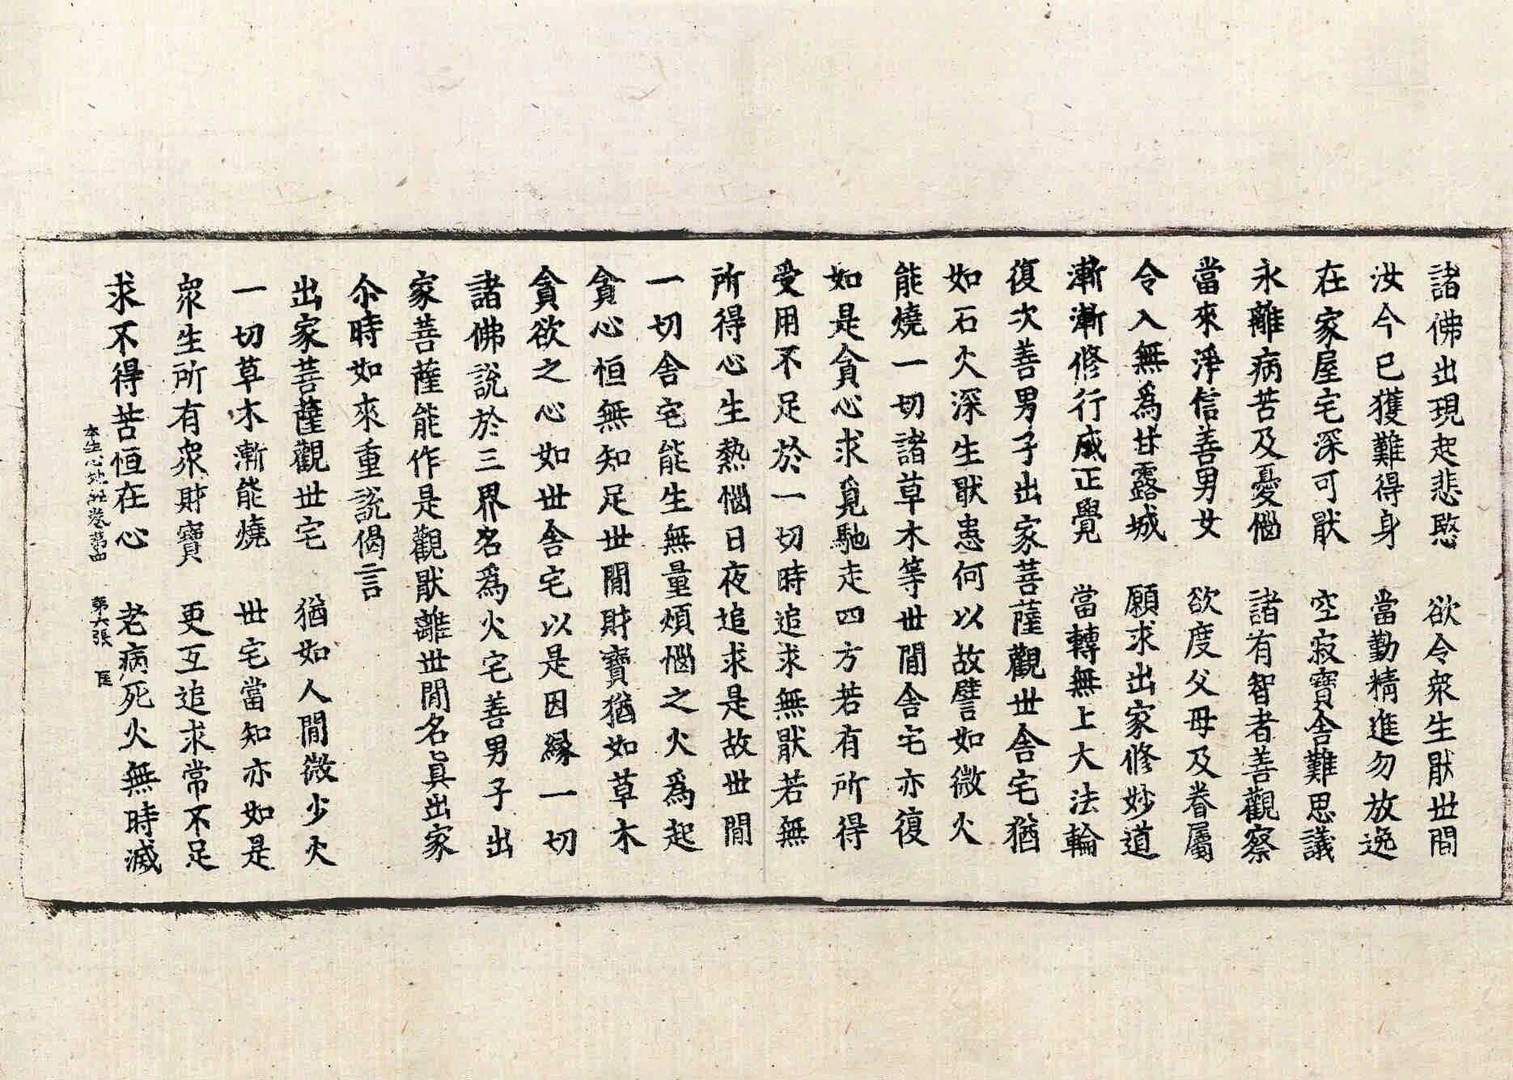 諸佛出現起悲愍　欲令衆生厭世間
汝今已獲難得身　當勤精進勿放逸
在家屋宅深可猒　空寂寶舎難思議
永離病苦及憂惱　諸有智者善觀察
當來淨信善男女　欲度父母及眷屬
令入無爲甘露城　願求出家修妙道
漸漸修行成正覺　當轉無上大法輪
復次善男子出家菩薩觀世舎宅猶
如石火深生猒患何以故譬如微火
能燒一切諸草木等世間舎宅亦復
如是貪心求覓馳走四方若有所得
受用不足於一切時追求無猒若無
所得心生熱惱日夜追求是故世間
一切舎宅能生無量煩惱之火爲起
貪心恒無知足世間財寶猶如草木
貪欲之心如世舎宅以是因緣一切
諸佛說於三界名爲火宅善男子出
家菩薩能作是觀猒離世間名眞出家
尒時如來重說偈言
出家菩薩觀世宅　猶如人間微少火
一切草木漸能燒　世宅當知亦如是
衆生所有衆財寶　更互追求常不足
求不得苦恒在心　老病死火無時滅
本生心地經卷第四　第六張　匡